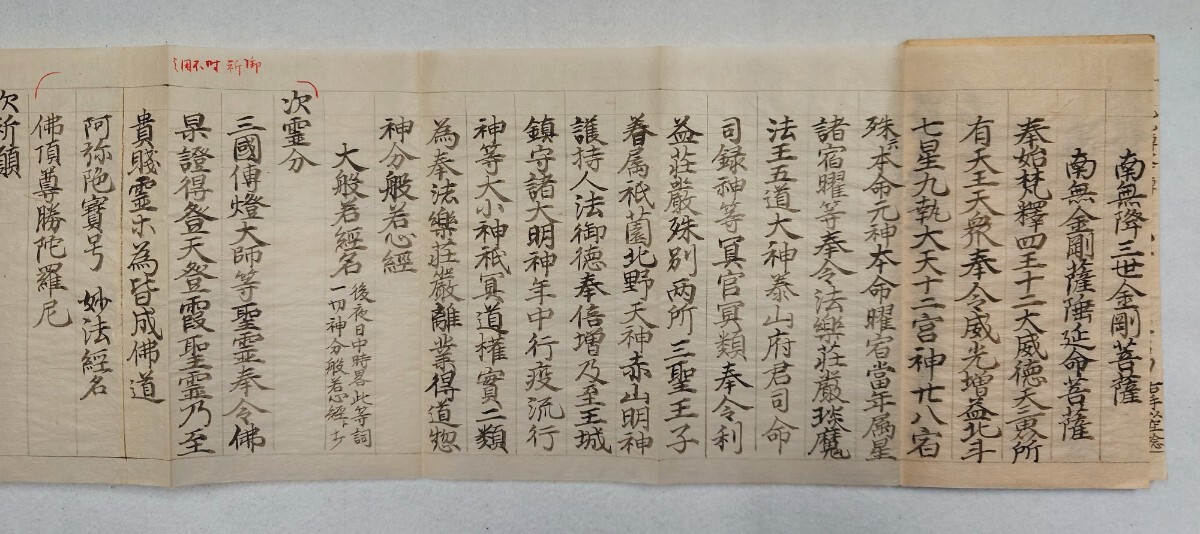 南無降三世金剛菩薩
南無金剛薩埵延命菩薩
奉始梵釋四王十二大威德天三界所
有天王天衆奉令威光増益北斗
七星九執大天十二宮神廿八宿
殊本命元神本命曜宿當年属星
諸宿曜等奉令法樂莊嚴琰魔
法王五道大神泰山府君司命
司録神等冥官冥類奉令利
益莊嚴殊別両所三聖王子
眷属祇薗北野天神赤山明神
護持人法御徳奉倍増乃至王城
鎮守諸大明神年中行疫流行
神等大小神祇冥道權實二類
為奉法樂莊嚴離業得道惣
神分般若心經
大般若經名 後夜日中時畧此等詞
一切神分般若心經下
次霊分
三國傳燈大師等聖霊奉令佛
果證得登天登霞聖霊乃至
貴賤霊木為皆成佛道
阿弥陀寳号 妙法經名
佛頂尊勝陀羅尼
次祈願
御祈時不用